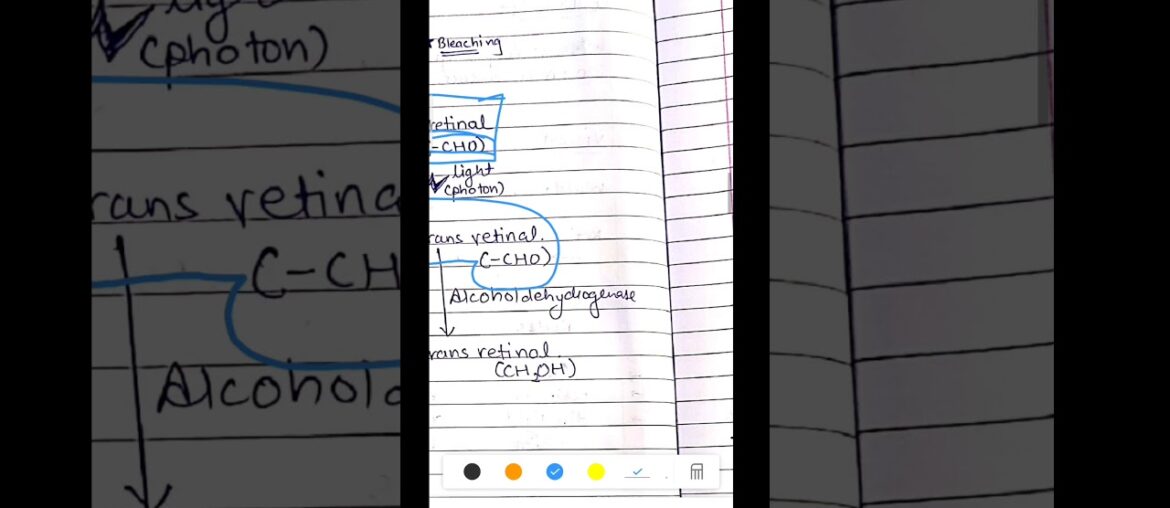 lig
(photon)
rans retina
C-CH
Alcohold
* Bleaching
retinal
(-CHO)
light
(photon)
rans retinal.
C-CHO)
Alcoholdehydrogenase
rans retinol.
(CH₂OH)